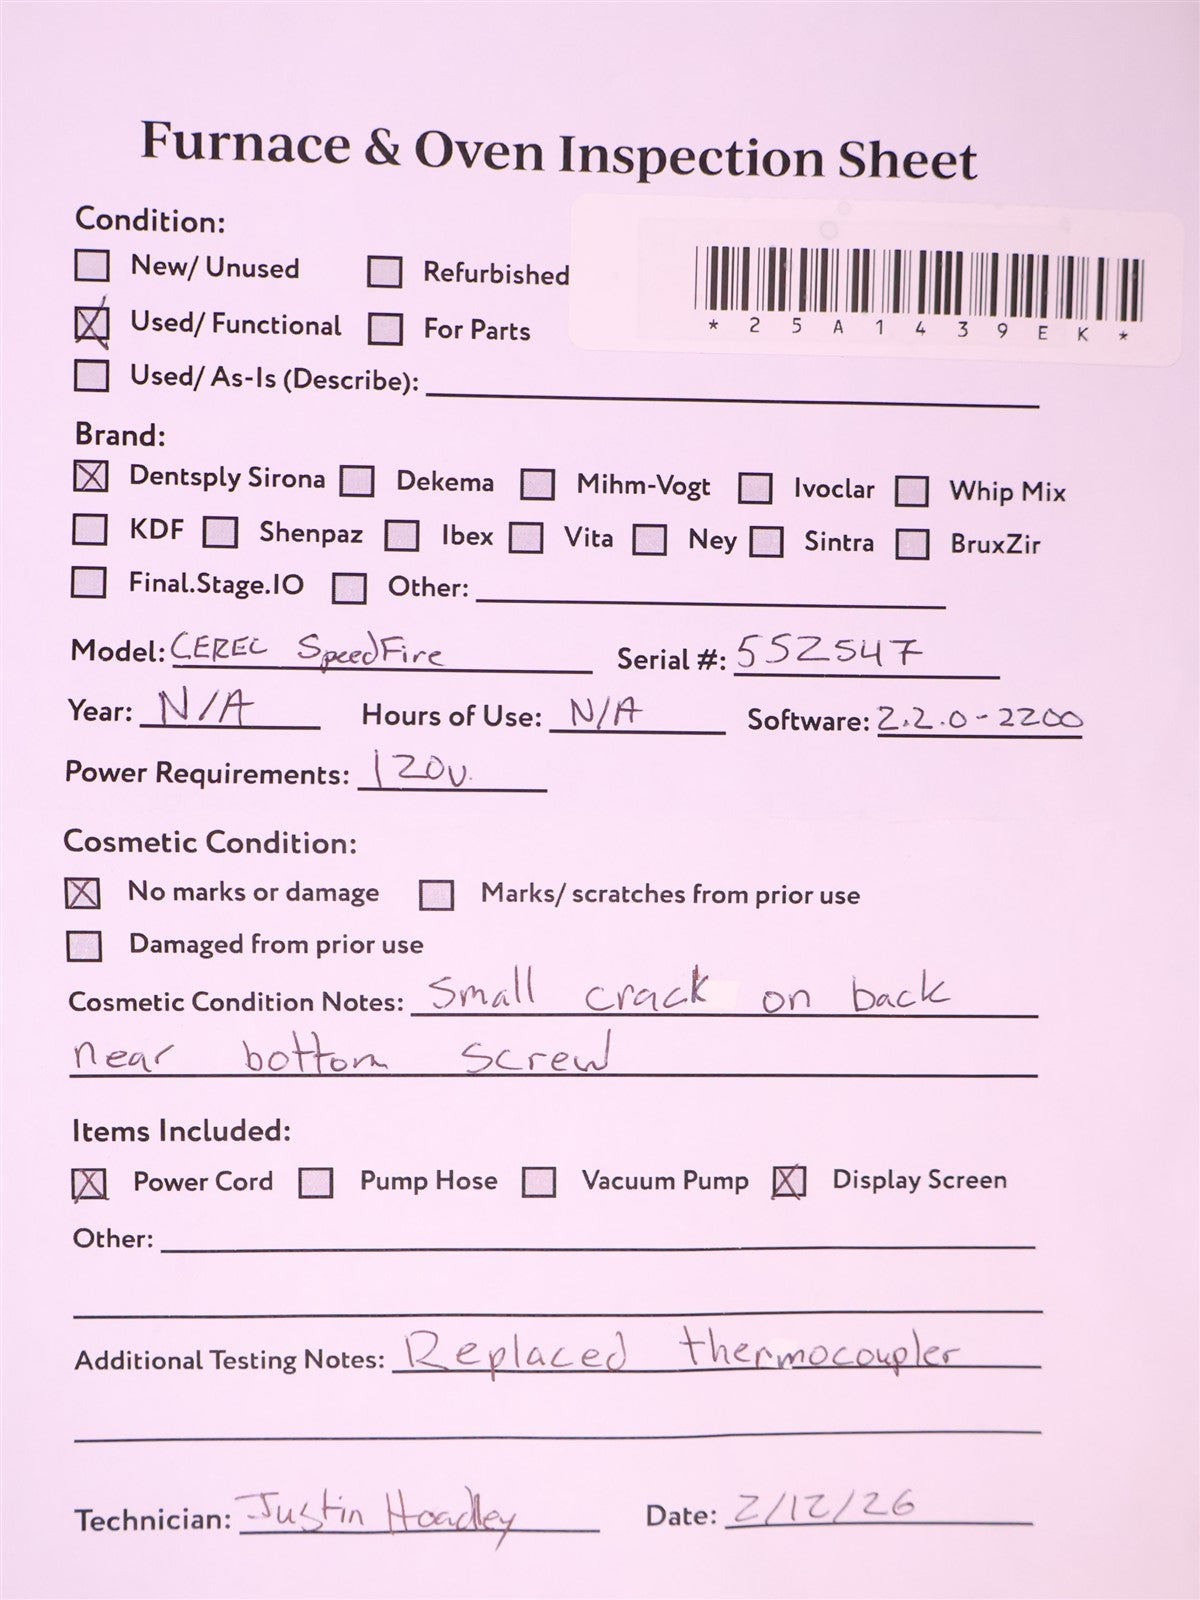 Furnace & Oven Inspection Sheet
Condition:
New/ Unused Refurbished
*25A1439EK*
Used/ Functional For Parts
Used/ As-Is (Describe):
Brand:
Dentsply Sirona Dekema Mihm-Vogt Ivoclar Whip Mix
KDF Shenpaz Ibex Vita Ney Sintra BruxZir
Final.Stage.IO Other:
Model: CEREC SpeedFire Serial #: 552547
Year: N/A Hours of Use: N/A Software: 2.2.0-2200
Power Requirements: 120v.
Cosmetic Condition:
No marks or damage Marks/ scratches from prior use
Damaged from prior use
Cosmetic Condition Notes: Small crack on back
near bottom screw
Items Included:
Power Cord Pump Hose Vacuum Pump Display Screen
Other:
Additional Testing Notes: Replaced thermocoupler
Technician: Justin Hoadley Date: 2/12/26